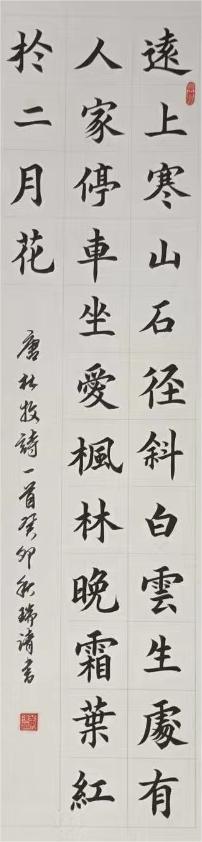 遠上寒山石径斜白雲生處有
人家停車坐愛楓林晚霜葉紅
於二月花
唐杜牧詩一首癸卯秋瑞清書